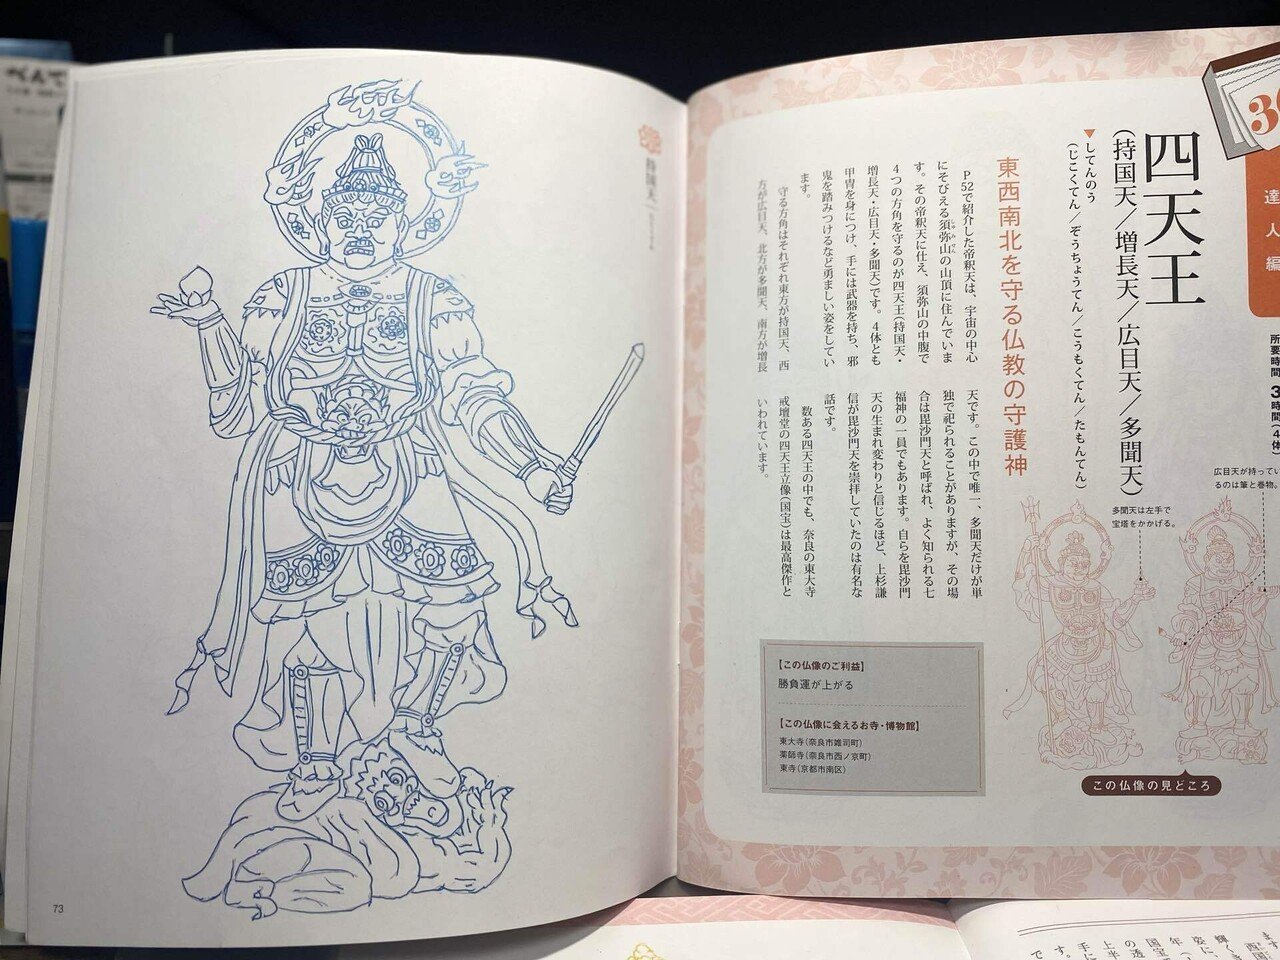 四天王
(持国天／増長天／広目天／多聞天)
▼してんのう
(じこくてん／ぞうちょうてん／こうもくてん／たもんてん)
東西南北を守る仏教の守護神
P52で紹介した帝釈天は、宇宙の中心
にそびえる須弥山の山頂に住んでいま
す。その帝釈天に仕え、須弥山の中腹で
4つの方角を守るのが四天王(持国天・
増長天・広目天・多聞天)です。4体とも
甲冑を身につけ、手には武器を持ち、邪
鬼を踏みつけるなど勇ましい姿をしてい
ます。
守る方角はそれぞれ東方が持国天、西
方が広目天、北方が多聞天、南方が増長
天です。この中で唯一、多聞天だけが単
独で祀られることがありますが、その場
合は毘沙門天と呼ばれ、よく知られる七
福神の一員でもあります。自らを毘沙門
天の生まれ変わりと信じるほど、上杉謙
信が毘沙門天を崇拝していたのは有名な
話です。
数ある四天王の中でも、奈良の東大寺
戒壇堂の四天王立像(国宝)は最高傑作と
いわれています。
【この仏像のご利益】
勝負運が上がる
【この仏像に会えるお寺・博物館】
東大寺(奈良市雑司町)
薬師寺(奈良市西ノ京町)
東寺(京都市南区)
達人編
所要時間 3時間(4体)
広目天が持ってい
るのは筆と巻物。
多聞天は左手で
宝塔をかかげる。
この仏像の見どころ
持国天
73